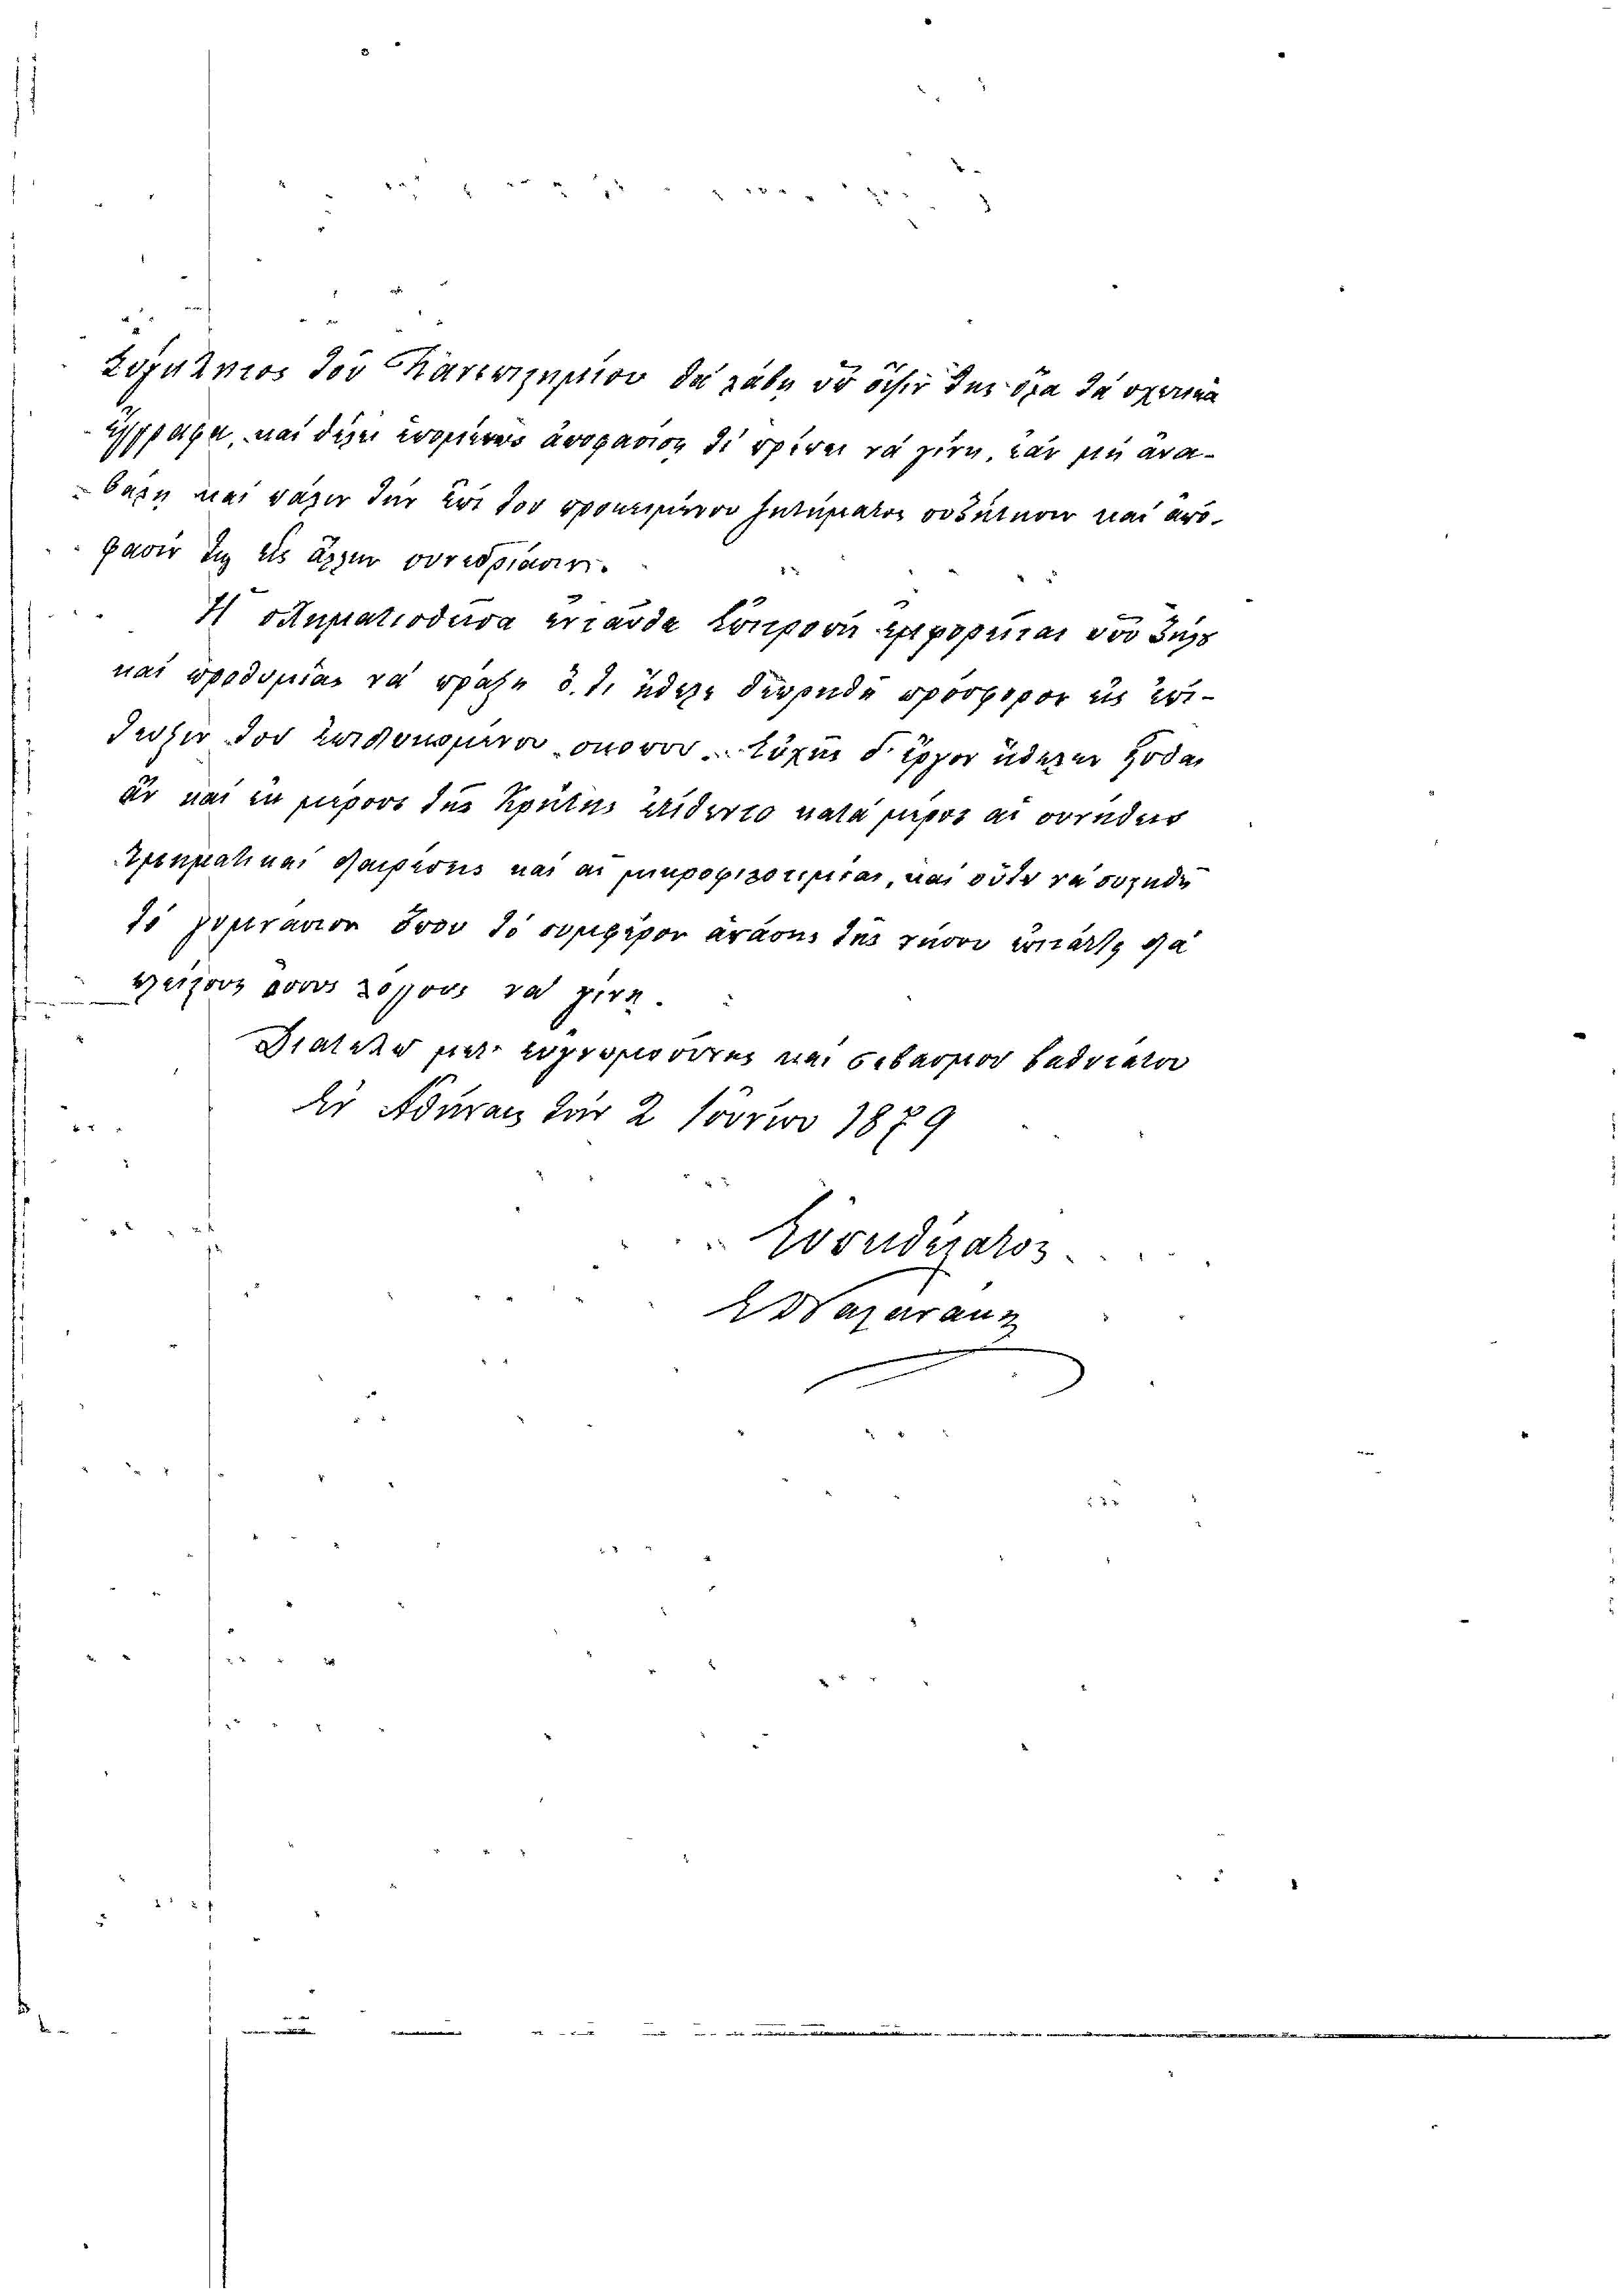 Σύγκλητος τοῦ Πανεπιστημίου θὰ λάβῃ ὑπ' ὄψιν της ὅλα τὰ σχετικὰ
ἔγγραφα, καὶ θέλει ἑπομένως ἀποφασίσῃ τί πρέπει νὰ γίνῃ, ἐὰν μὴ ἀνα-
βάλῃ καὶ πάλιν τὴν ἐπὶ τοῦ προκειμένου ζητήματος συζήτησιν καὶ ἀπό-
φασίν της εἰς ἄλλην συνεδρίασιν.
Ἡ σχηματισθεῖσα ἐνταῦθα ἐπιτροπὴ ἐμφορεῖται ὑπὸ ζήλου
καὶ προθυμίας νὰ πράξῃ ὅ,τι ἤθελε θεωρηθῆ πρόσφορον εἰς ἐπί-
τευξιν τοῦ ἐπιδιωκομένου σκοποῦ. Εὐχῆς δ' ἔργον ἤθελεν εἶσθαι
ἂν καὶ ἐκ μέρους τῆς Κρήτης ἐτίθεντο κατὰ μέρος αἱ συνήθεις
καὶ αἱ μικροφιλοτιμίαι, καὶ οὕτω νὰ συληθῇ
τὸ ὅπου τὸ συμφέρον ἁπάσης τῆς νήσου διὰ
πλείστους ὅσους λόγους νὰ γίνῃ.
Διατελῶ μετ' εὐγνωμοσύνης καὶ σεβασμοῦ βαθυτάτου
Ἐν Ἀθήναις τὴν 2 Ἰουνίου 1879
Εὐπειθέστατος